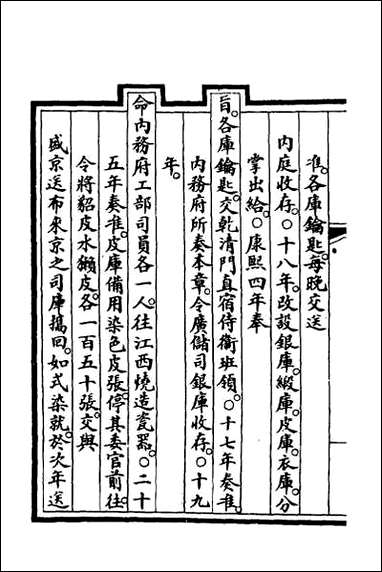 准。各庫鑰匙。每晚交送
内庭收存。○十八年。改設銀庫。緞庫。皮庫。衣庫。分
掌出給。○康熙四年奉
旨。各庫鑰匙。交乾清門直宿侍衛班領。○十七年奏准。
内務府所奏本章。令廣儲司銀庫收存。○十九
年。
命内務府工部司員各一人。往江西燒造瓷器。○二十
五年奏准。皮庫備用染色皮張。停其委官前往。
令將貂皮水獺皮。各一百五十張。交與
盛京送布來京之司庫攜回。如式染就。於次年送